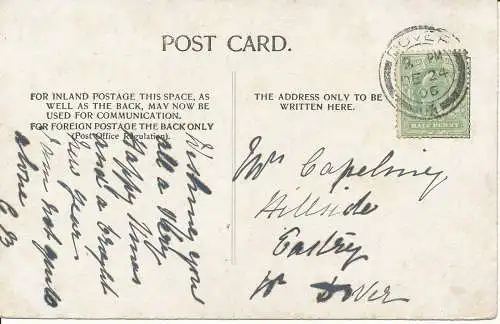 POST CARD.
FOR INLAND POSTAGE THIS SPACE, AS
WELL AS THE BACK, MAY NOW BE
USED FOR COMMUNICATION.
FOR FOREIGN POSTAGE THE BACK ONLY
(Post Office Regulation).
THE ADDRESS ONLY TO BE
WRITTEN HERE.
DOVER
PM
DE 24
06
HALFPENNY
Wishing you
all a very
Happy Xmas
and a bright
New Year
am not quite
alone
Mr Capelning
Hillside
Eastry
Nr Dover